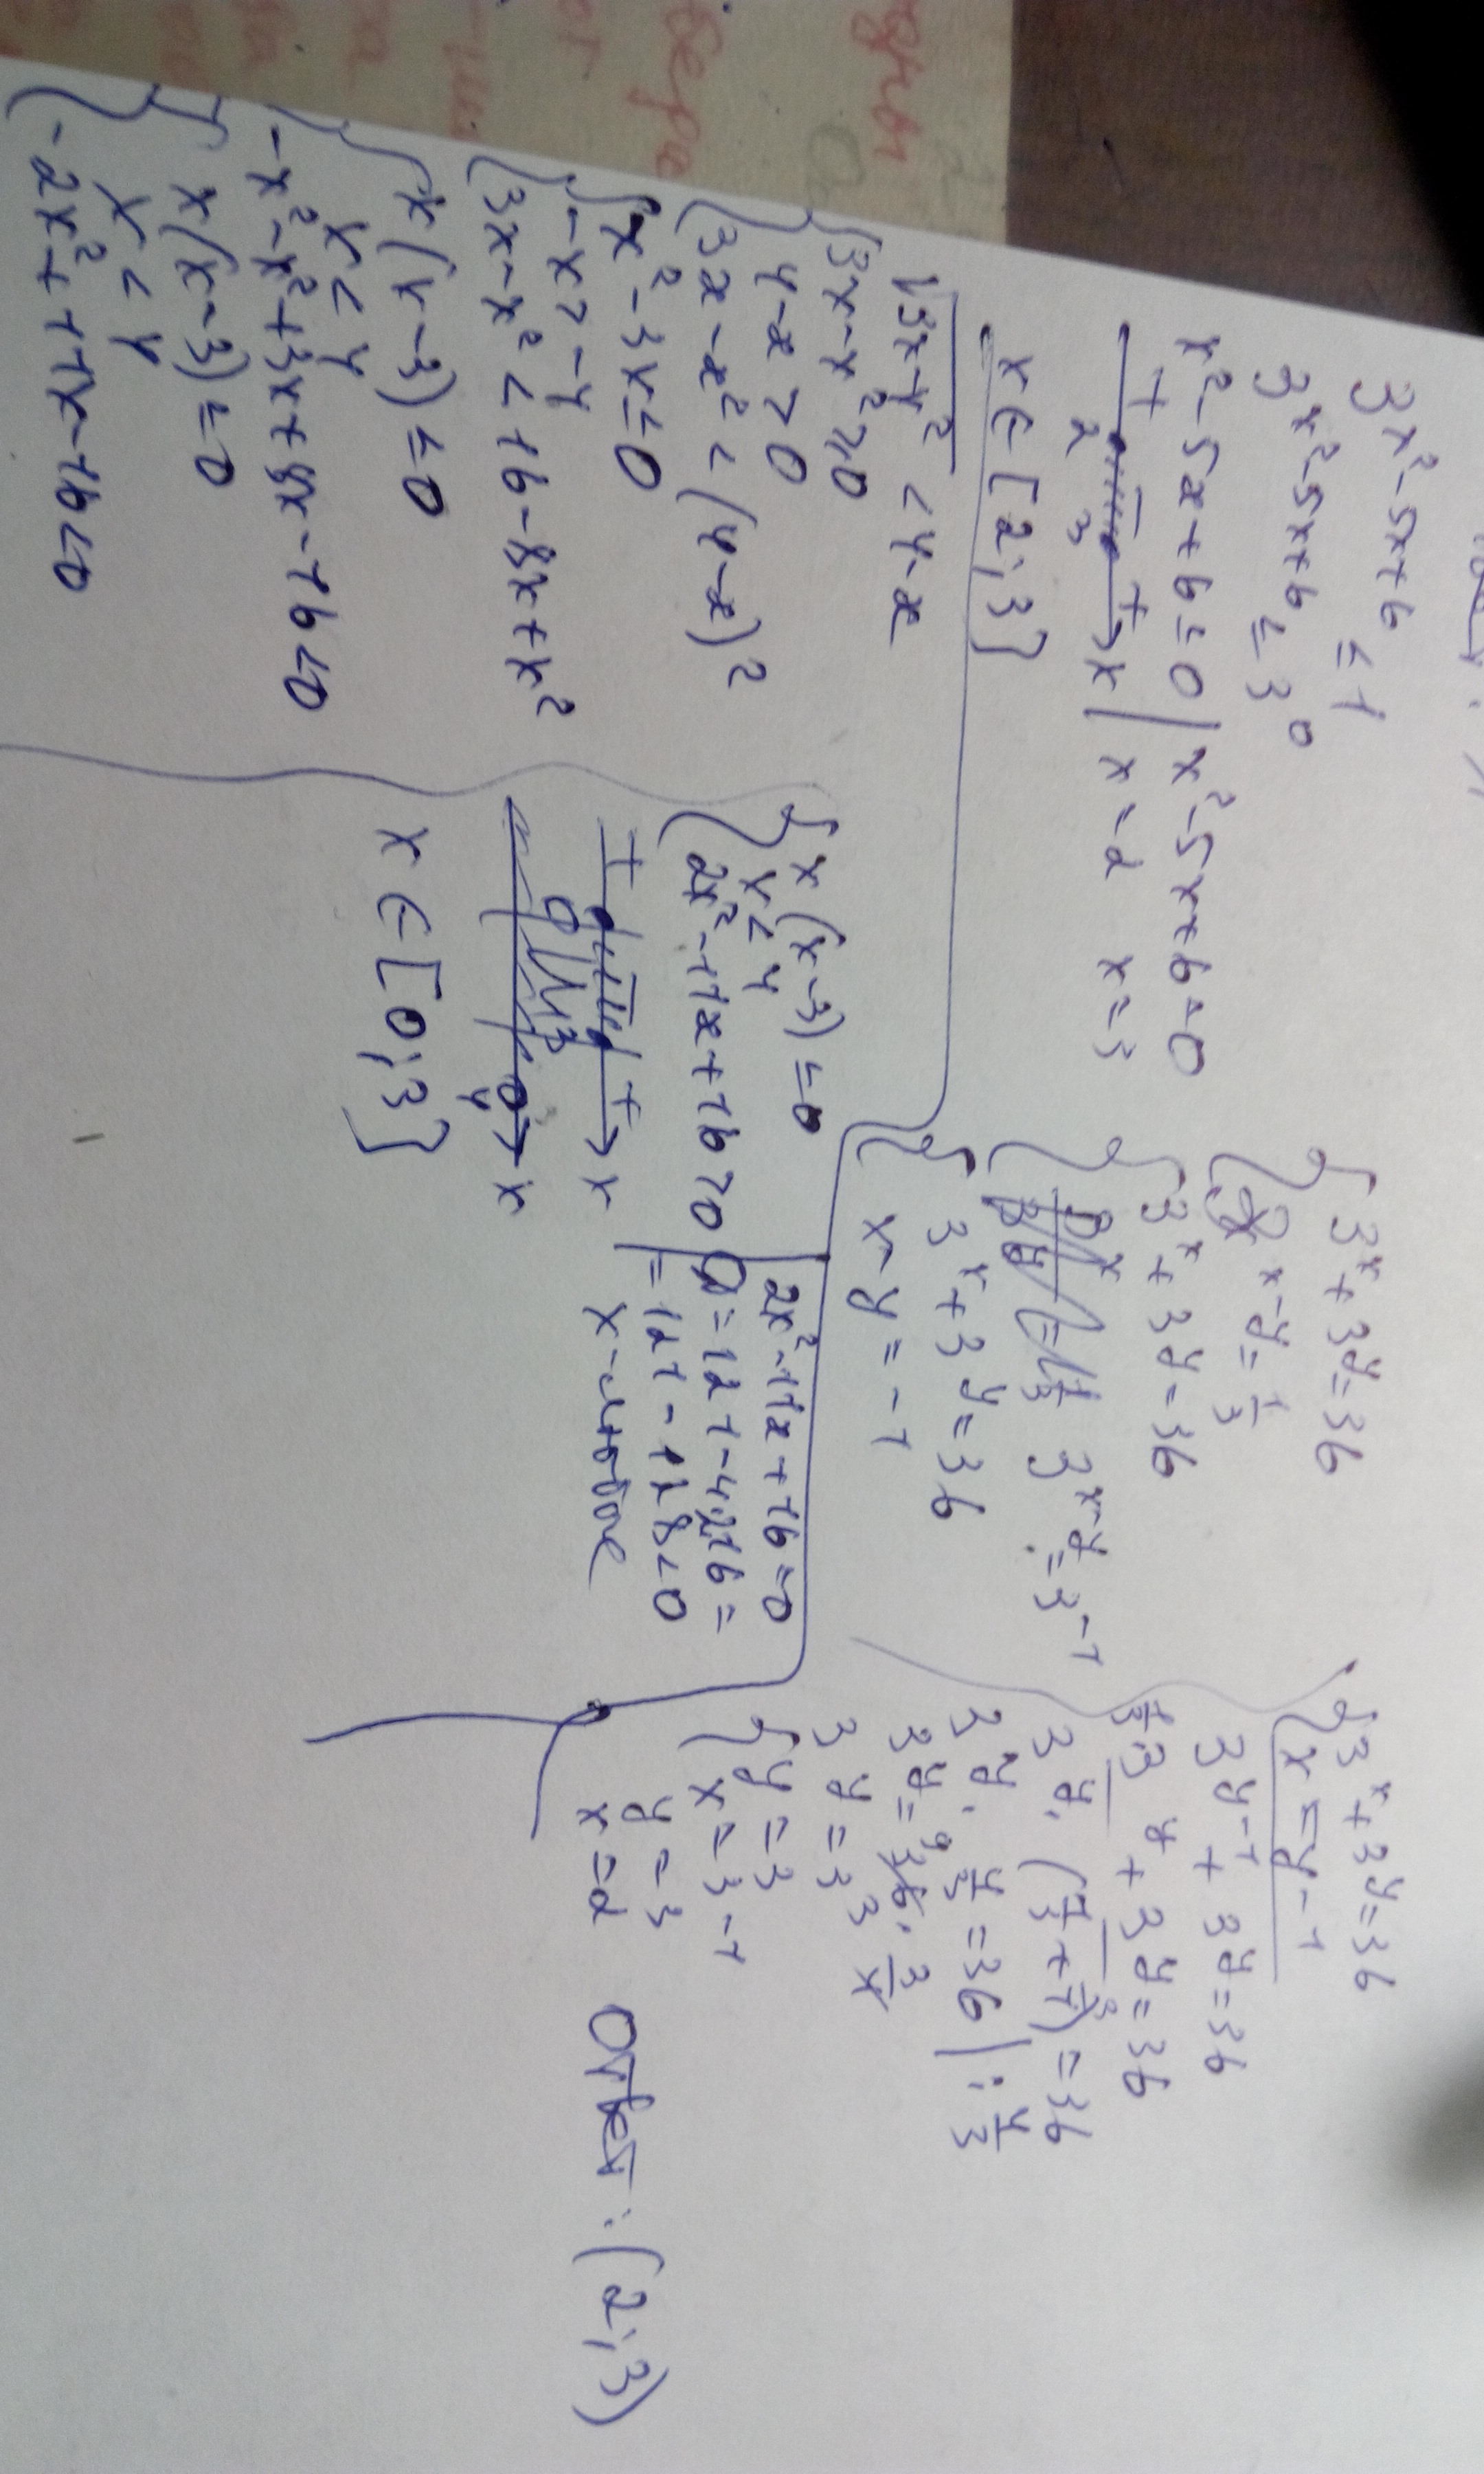 3^(x²-5x+6) ≤ 1
3^(x²-5x+6) ≤ 3^0
x²-5x+6 ≤ 0 | x²-5x+6=0
+ 2 - 3 + x | x=2 x=3
x ∈ [2;3]
√(3x-x²) < 4-x
{3x-x² ≥ 0
4-x > 0
3x-x² < (4-x)²
{x²-3x ≤ 0
-x > -4
3x-x² < 16-8x+x²
{x(x-3) ≤ 0
x < 4
-x²-x²+3x+8x-16<0
{x(x-3) ≤ 0
x < 4
-2x²+11x-16<0
{x(x-3) ≤ 0
x < 4
2x²-11x+16>0
+ - + x
0 3
4 x
x ∈ [0;3]
2x²-11x+16=0
D=121-4·2·16=
=121-128<0
x-любое
{3^x+3^y=36
3^(x-y)=1/3
{3^x+3^y=36
3^(x-y)=3^(-1)
{3^x+3^y=36
x-y=-1
{3^x+3^y=36
x=y-1
3^(y-1)+3^y=36
1/3·3^y+3^y=36
3^y·(1/3+1)=36
3^y·4/3=36 |:4/3
3^y=36·3/4
3^y=3³
{y=3
x=3-1
y=3
x=2
Ответ: (2;3)